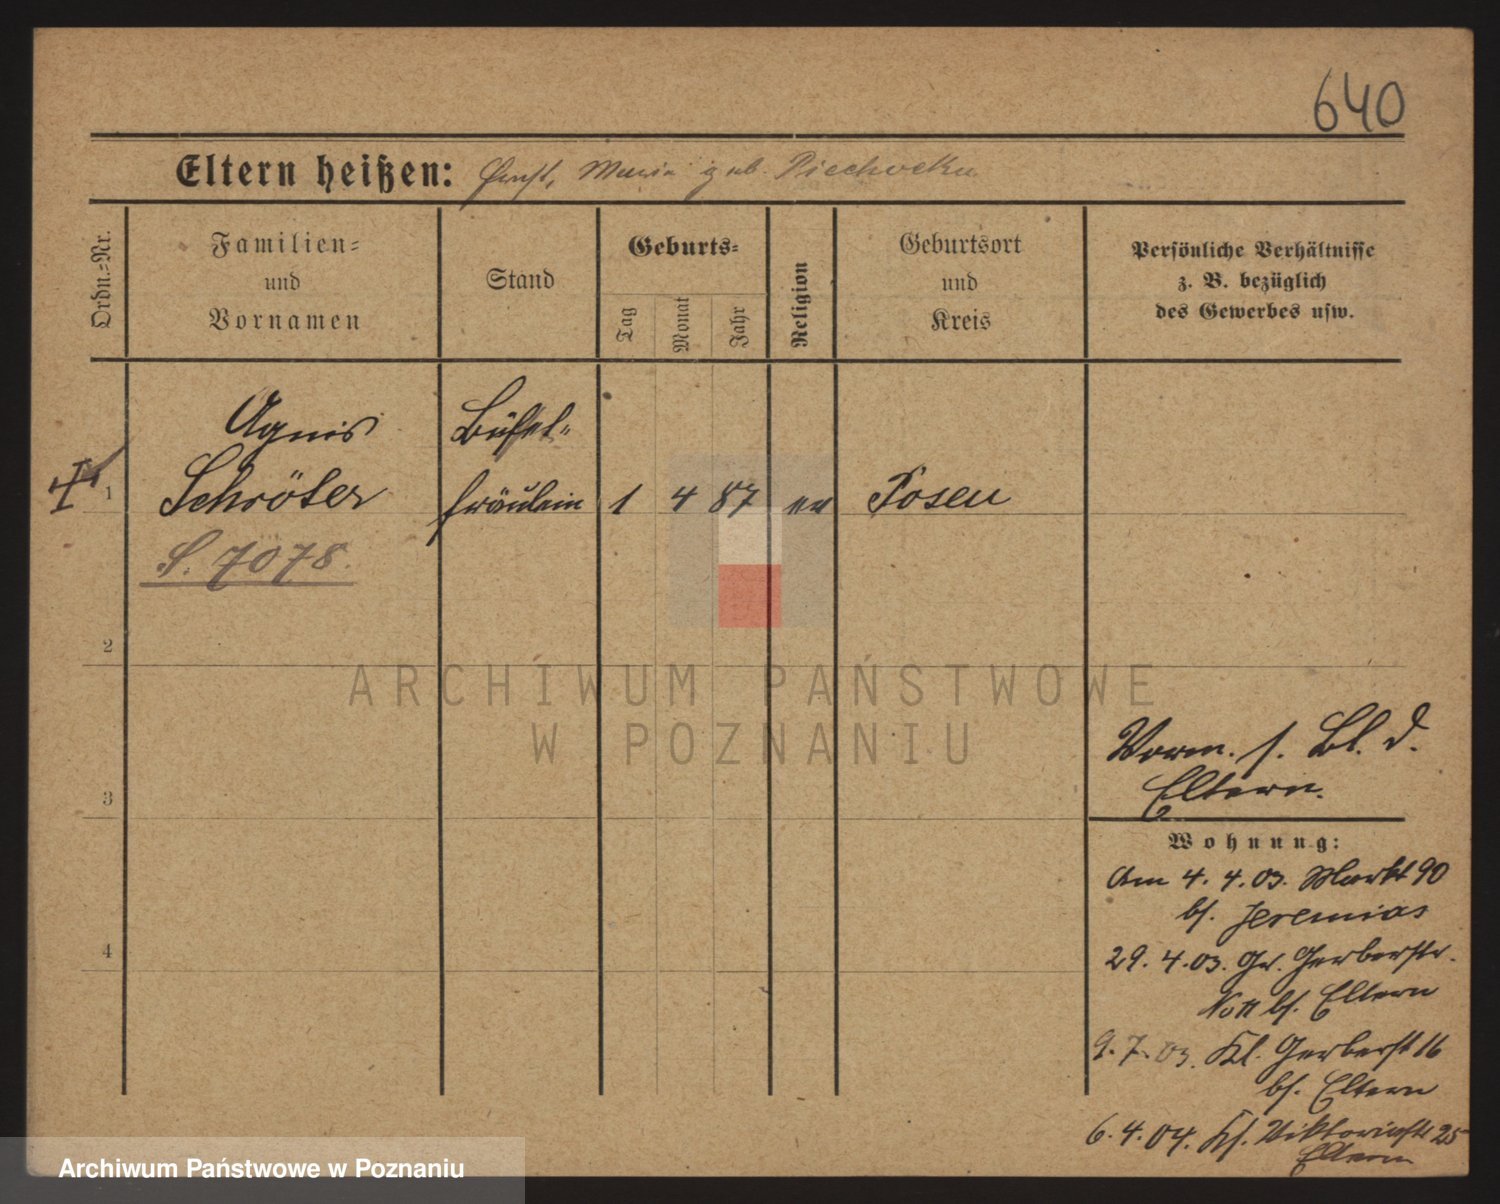 640
Eltern heißen: Ernst, Maria geb. Piechocka
Ordn.=Nr.
Familien=
und
Vornamen
Stand
Geburts=
Tag
Monat
Jahr
Religion
Geburtsort
und
Kreis
Persönliche Verhältnisse
z. B. bezüglich
des Gewerbes usw.
Agnes Büfet=
1 Schröter fräulein 1 4 87 ev Posen
S. 7078.
2
ARCHIWUM PAŃSTWOWE
W POZNANIU
3
Vorm. s. Bl. d.
Eltern.
Wohnung:
Am 4. 4. 03. Markt 90
bs. Jeremias
4
29. 4. 03. Gr. Gerberstr.
bs. Eltern
9. 7. 03. Kl. Gerberst 16
bs. Eltern
6. 4. 04. Viktoriastr 25
Eltern
Archiwum Państwowe w Poznaniu